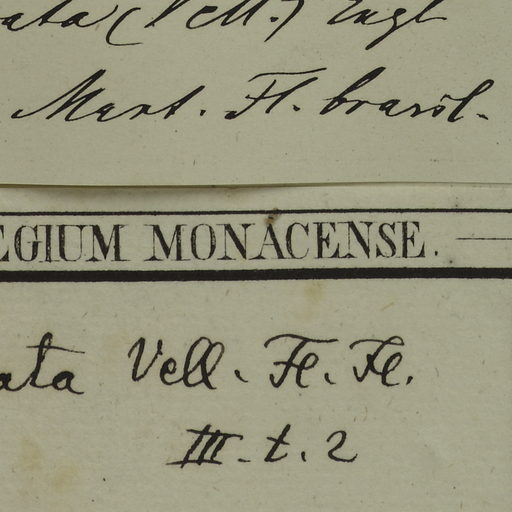 ata (Vell.) Engl
Mart. Fl. brasil.
EGIUM MONACENSE.
ata Vell. Fl. Fl.
III. t. 2